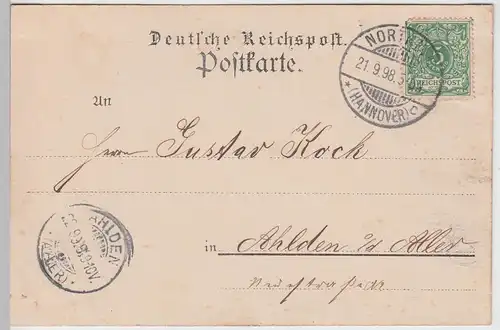 Deutsche Reichspost.
Postkarte.
NORT
21.9.98.
*(HANNOVER)c
5
REICHSPOST
An
Herrn Gustav Koch
AHLDEN
22.9.98.9-10V.
(ALLER)
in Ahlden a/d Aller